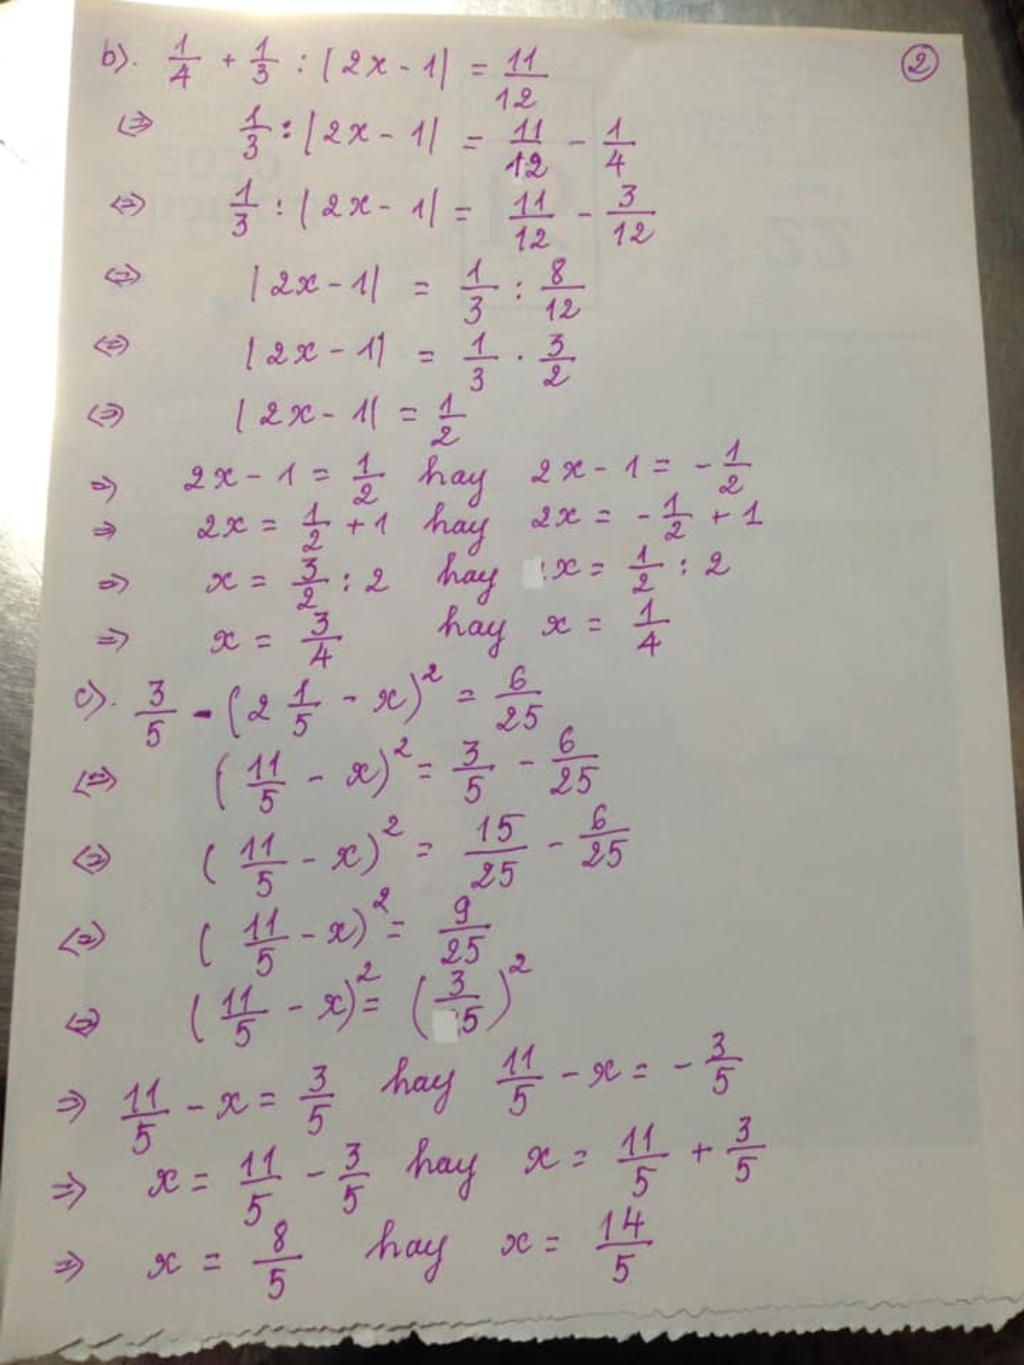 b). 1/4 + 1/3 : |2x - 1| = 11/12 ②
<=> 1/3 : |2x - 1| = 11/12 - 1/4
<=> 1/3 : |2x - 1| = 11/12 - 3/12
<=> |2x - 1| = 1/3 : 8/12
<=> |2x - 1| = 1/3 . 3/2
<=> |2x - 1| = 1/2
=> 2x - 1 = 1/2 hay 2x - 1 = - 1/2
=> 2x = 1/2 + 1 hay 2x = - 1/2 + 1
=> x = 3/2 : 2 hay x = 1/2 : 2
=> x = 3/4 hay x = 1/4
c). 3/5 - (2 1/5 - x)² = 6/25
<=> (11/5 - x)² = 3/5 - 6/25
<=> (11/5 - x)² = 15/25 - 6/25
<=> (11/5 - x)² = 9/25
<=> (11/5 - x)² = (3/5)²
=> 11/5 - x = 3/5 hay 11/5 - x = - 3/5
=> x = 11/5 - 3/5 hay x = 11/5 + 3/5
=> x = 8/5 hay x = 14/5